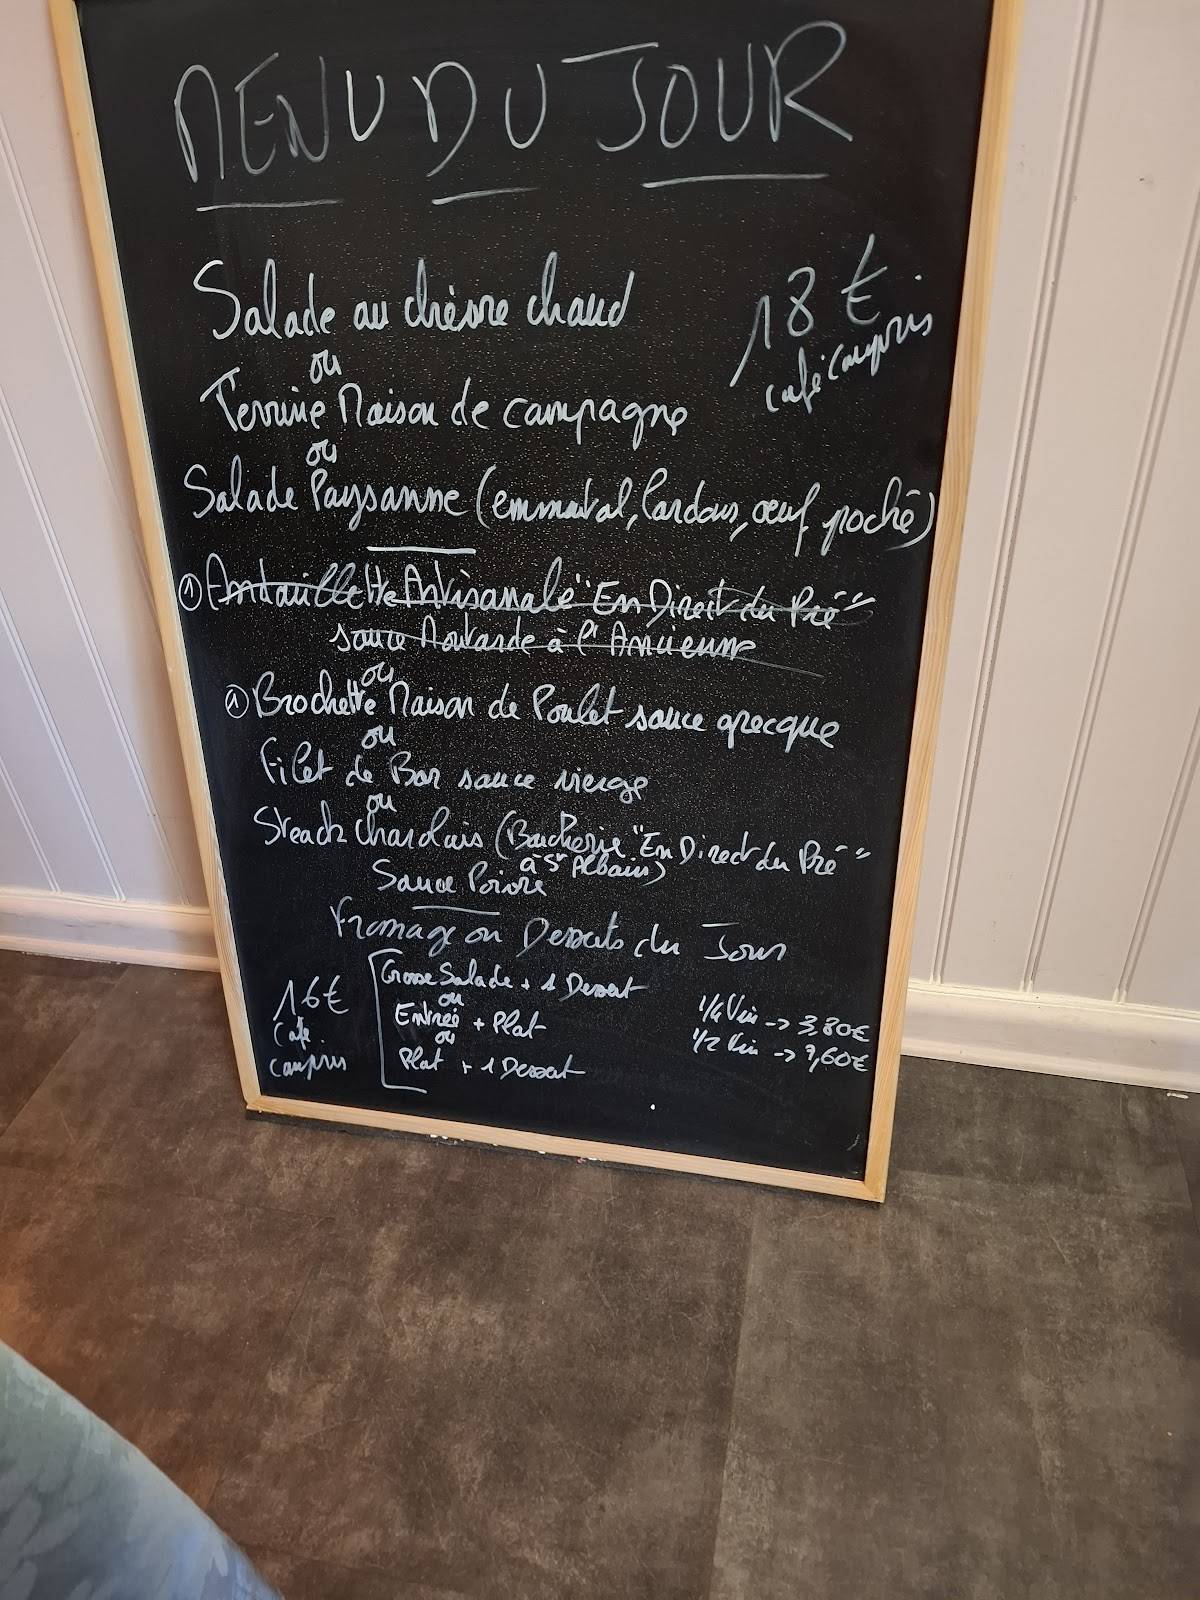 MENU DU JOUR
Salade au chèvre chaud
18 €
café compris
ou
Terrine Maison de campagne
ou
Salade Paysanne (emmental, lardons, œuf poché)
① Andouillette Artisanale "En Direct du Pré"
sauce Moutarde à l'Ancienne
ou
① Brochette Maison de Poulet sauce grecque
ou
Filet de Bar sauce vierge
ou
Steack charolais (Boucherie "En Direct du Pré"
à St Albain)
Sauce Poivre
Fromage ou Desserts du Jour
16€
café
compris
Grosse Salade + 1 Dessert
ou
Entrée + Plat
ou
Plat + 1 Dessert
1/4 Vin -> 3,80€
1/2 Vin -> 7,60€